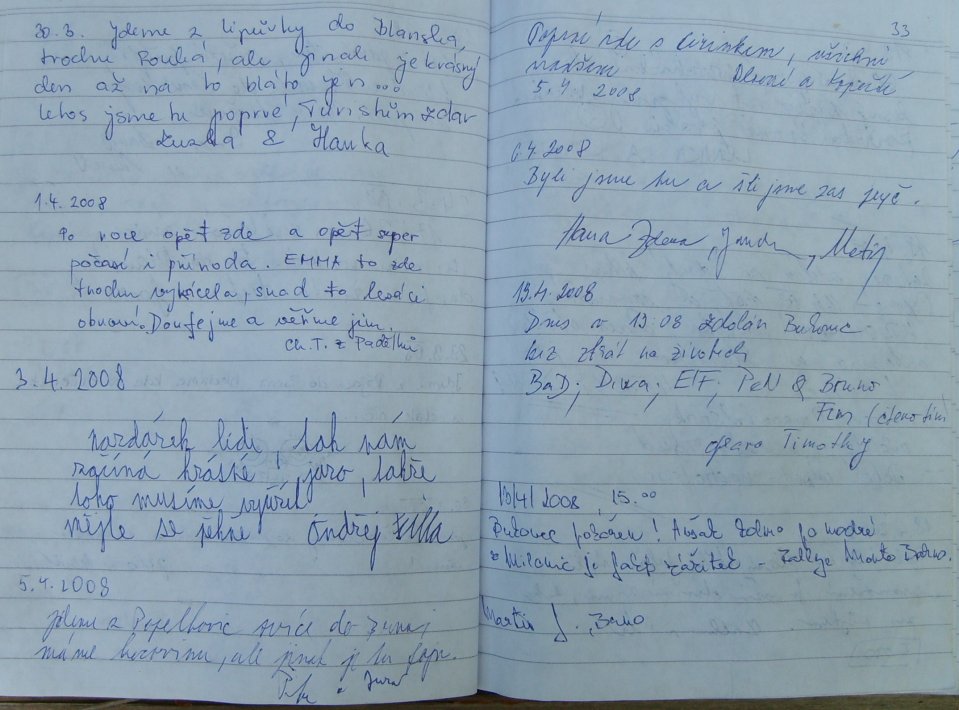 30.3. Jdeme z Lipůvky do Blanska,
trochu fouká, ale jinak je krásný
den až na to bláto jen...
letos jsme tu poprvé, Turistům zdar
Zuzka & Hanka
1.4. 2008
Po roce opět zde a opět super
počasí i příroda. EMMA to zde
trochu vykácela, snad to lesáci
obnoví. Doufejme a věřme jim.
Ch.T. z Padělků
3.4. 2008
nazdárek lidi, tak nám
začíná krásné jaro, takže
toho musíme využít
mějte se pěkně Ondřej
5.4. 2008
jdeme z do
máme kocovinu, ale jinak je tu fajn.
33
Poprvé zde s , všichni
nadšeni
5.4. 2008
6.4. 2008
Byli jsme tu a šli jsme zas pryč.
Hana Zdena, Jandr,
19.4. 2008
Dnes v 19:08 zdolán Bukovec
bez ztrát na životech
BaD; Diwa; ElF, PeN & Bruno
(čteno tim
Timothy
2008, 15.00
Bukovec pokořen! Avšak po modré
z Milonic je fakt zážitek - Brno.
Martin J., Brno